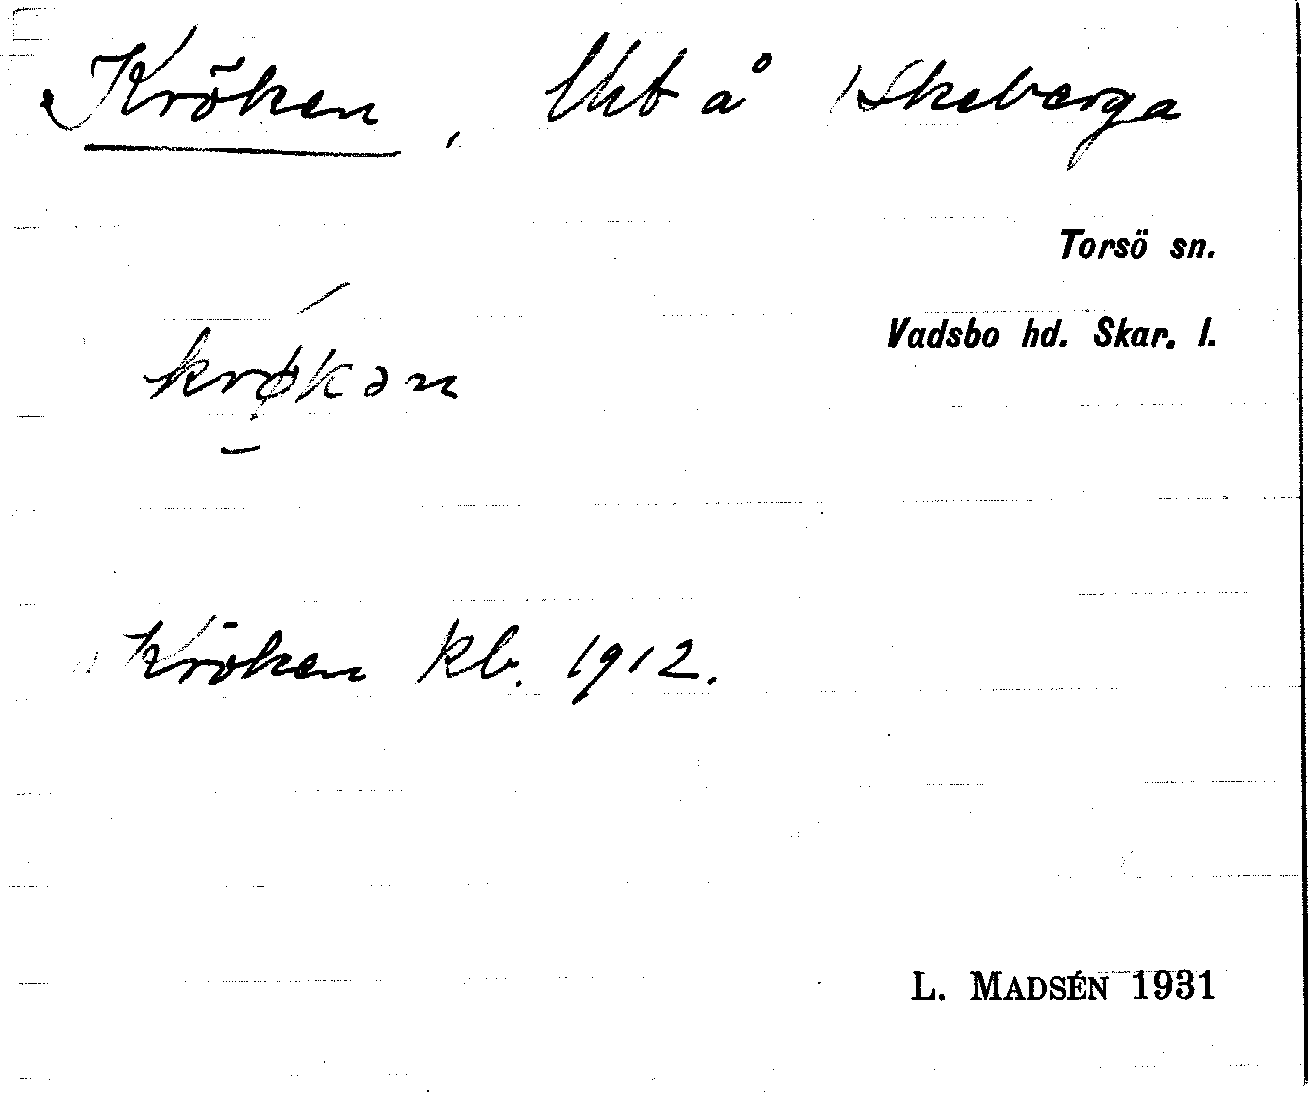 Kröken, Uht å Skeberga
Torsö sn.
Vadsbo hd. Skar. l.
krøkən
Kröken kb. 1912.
L. MADSÉN 1931